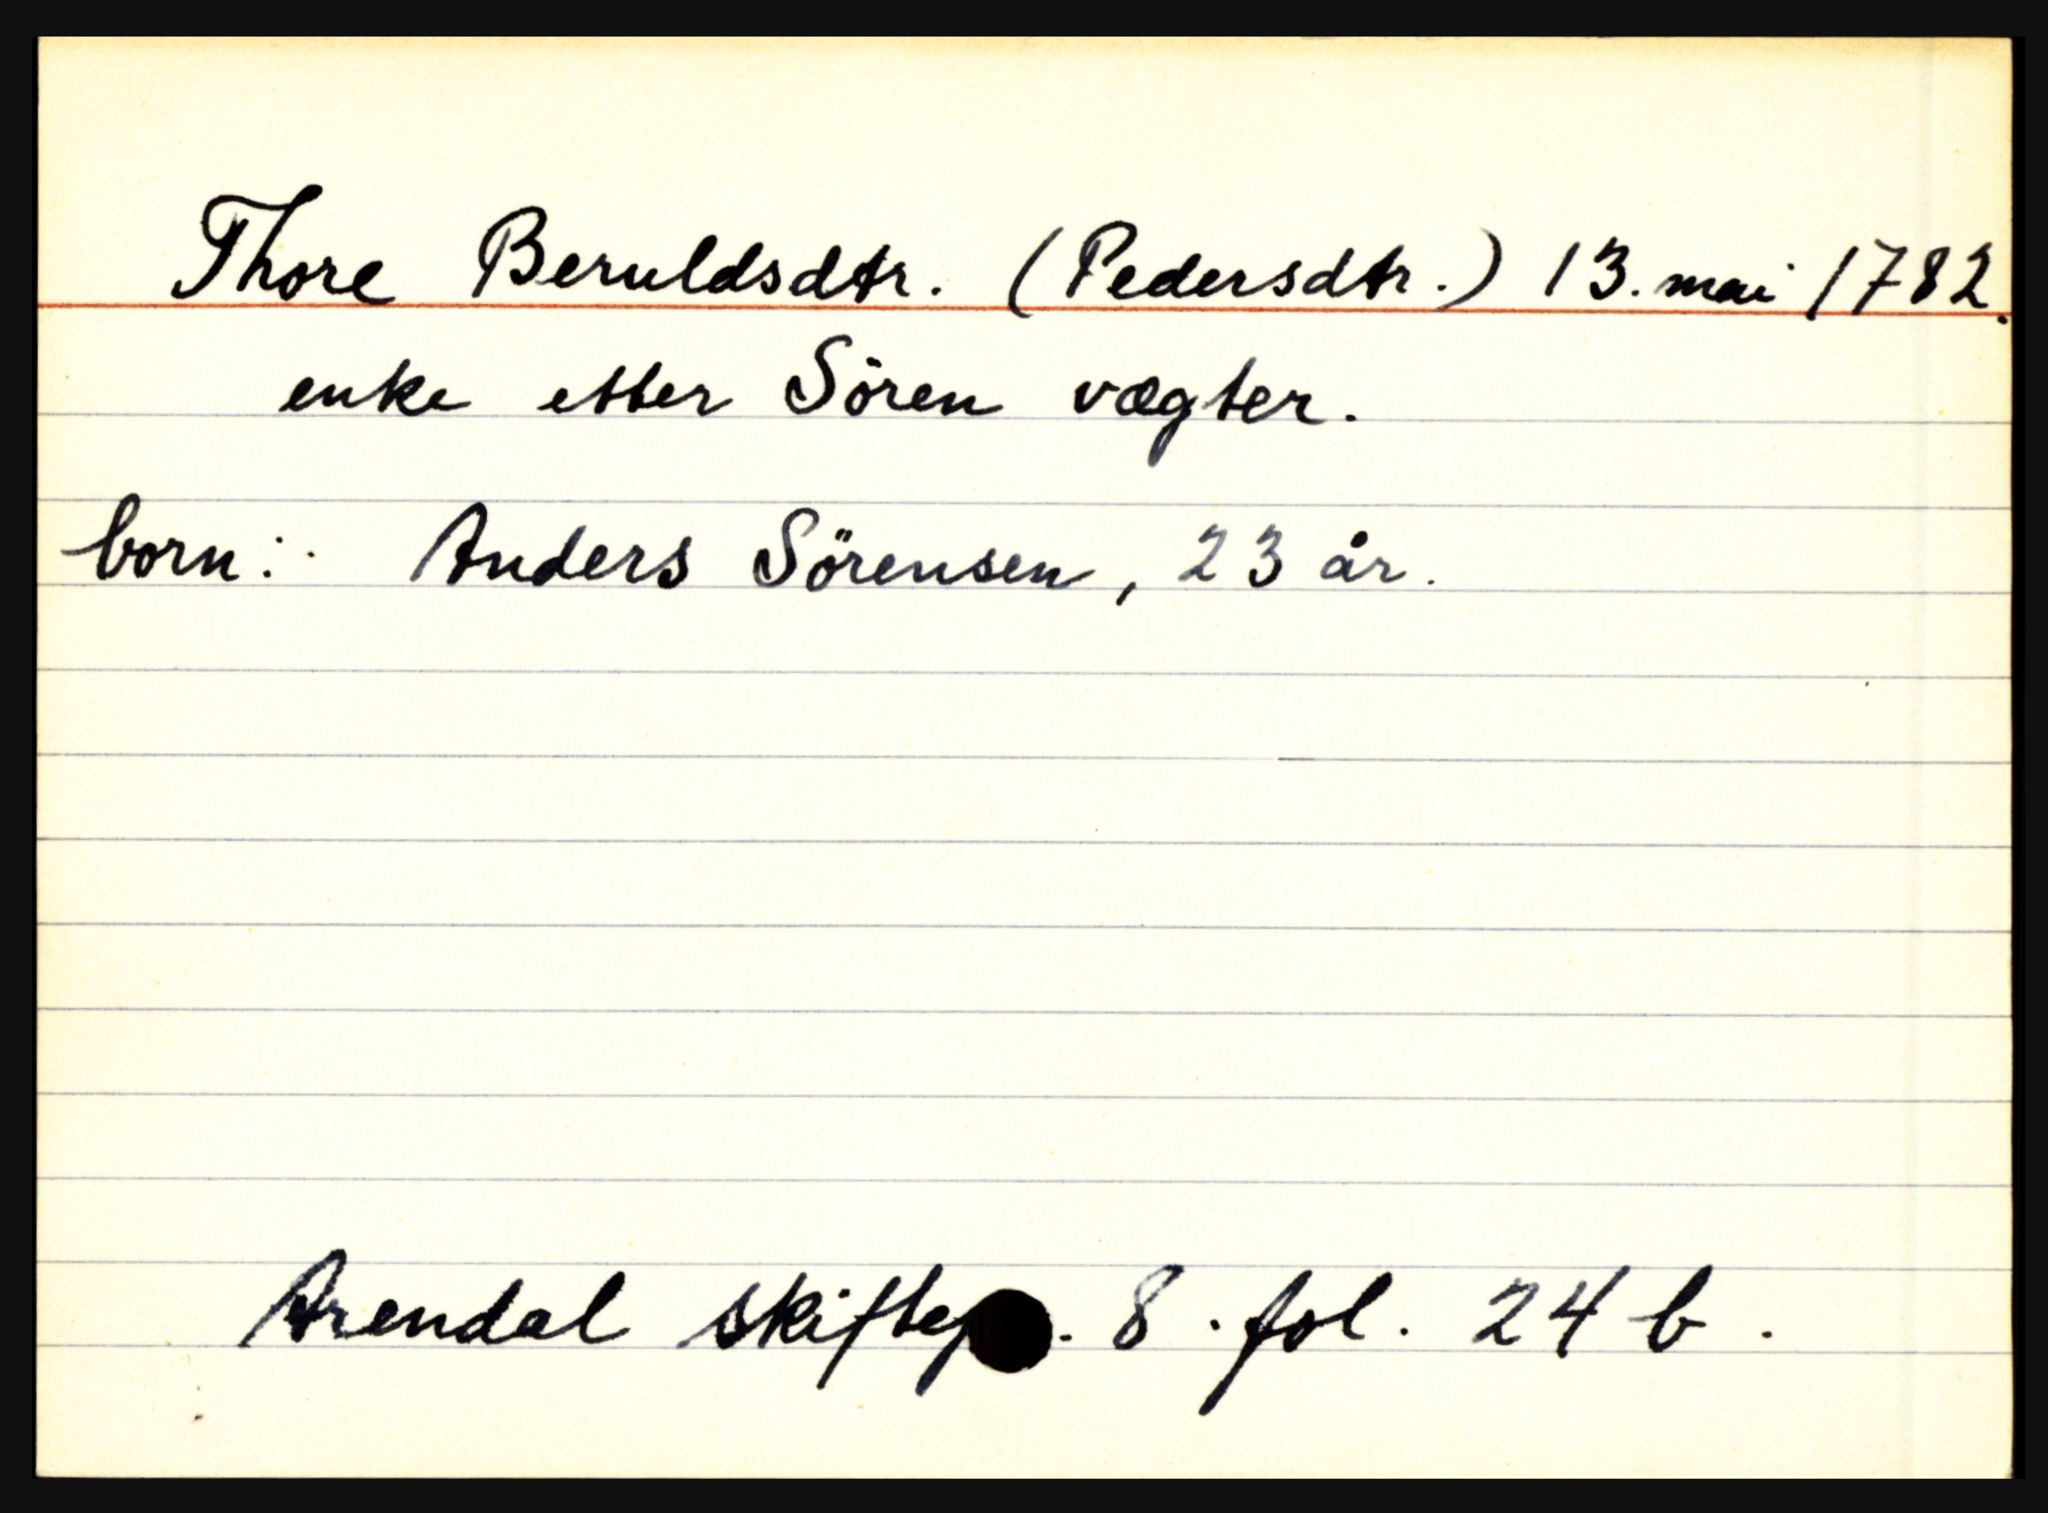 Thore Beruldsdtr. (Pedersdtr.) 13. mai 1782.
enke etter Sören vægter.
born: Anders Sörensen, 23 år.
Arendal 8. fol. 24 b.